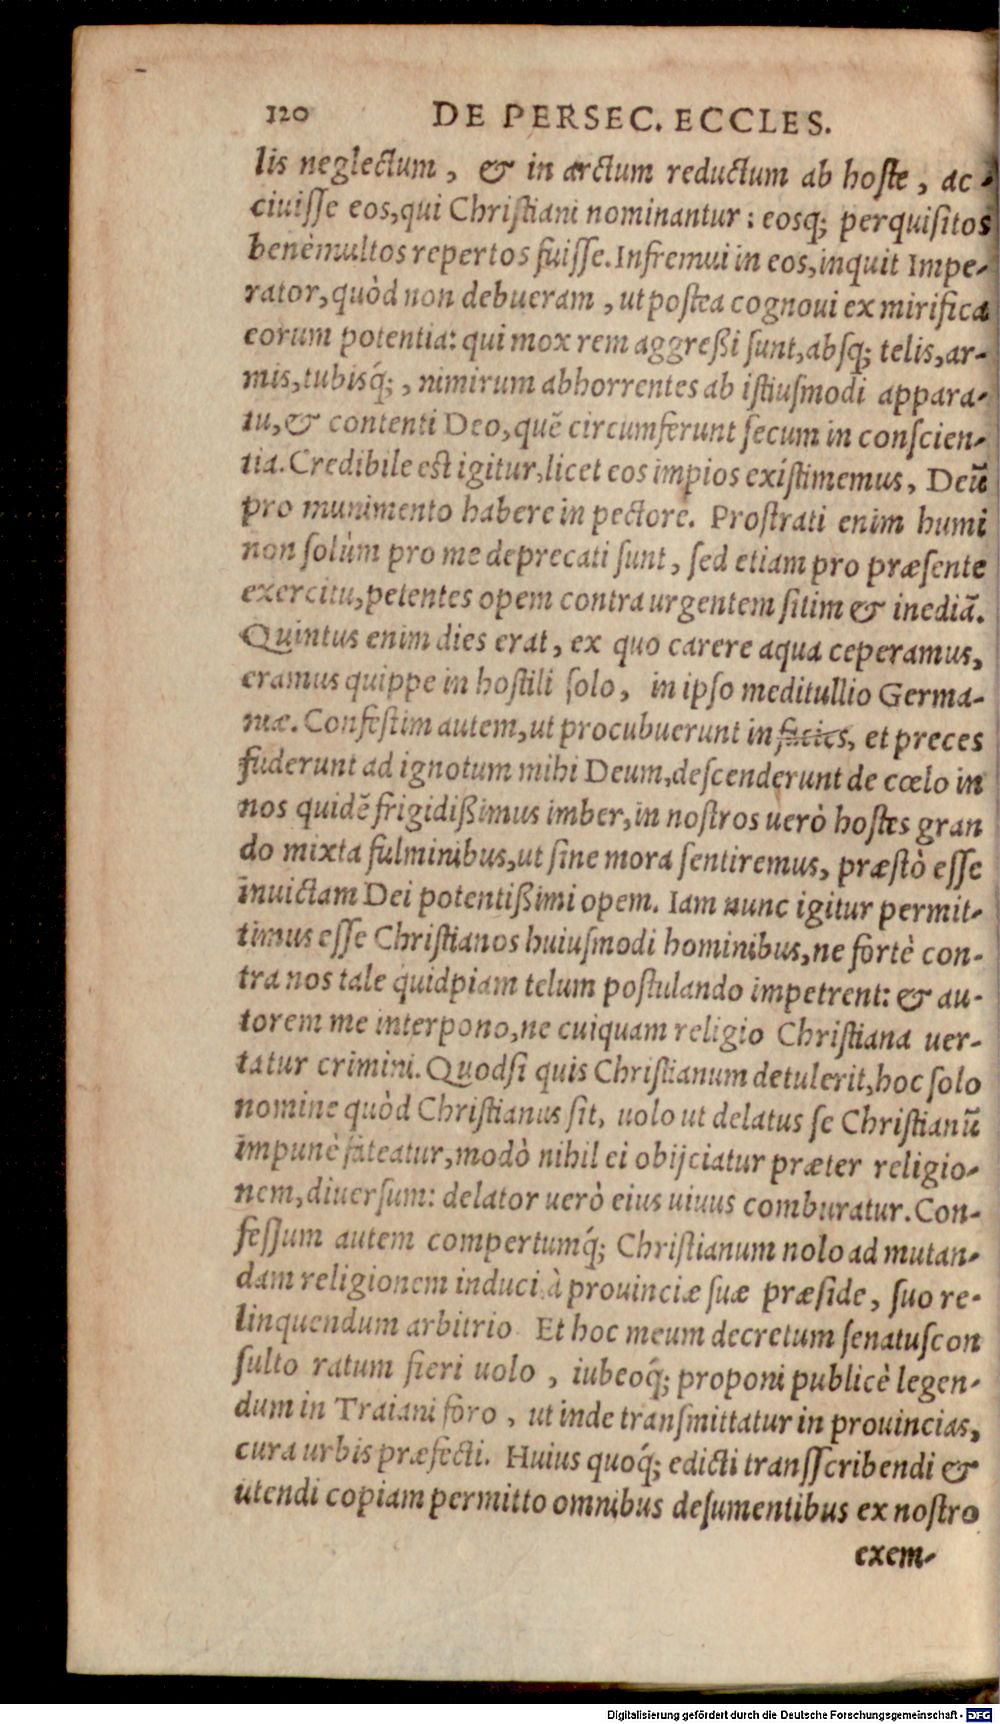 120 DE PERSEC. ECCLES.
lis neglectum, & in arctum reductum ab hoste, ac-
ciuisse eos, qui Christiani nominantur: eosq; perquisitos
benèmultos repertos fuisse. Infremui in eos, inquit Impe-
rator, quòd non debueram, ut postea cognoui ex mirifica
eorum potentia: qui mox rem aggreßi sunt, absq; telis, ar-
mis, tubisq́;, nimirum abhorrentes ab istiusmodi appara-
tu, & contenti Deo, quẽ circumferunt secum in conscien-
tia. Credibile est igitur, licet eos impios existimemus, Deũ
pro munimento habere in pectore. Prostrati enim humi
non solùm pro me deprecati sunt, sed etiam pro præsente
exercitu, petentes opem contra urgentem sitim & inediã.
Quintus enim dies erat, ex quo carere aqua ceperamus,
eramus quippe in hostili solo, in ipso meditullio Germa-
niæ. Confestim autem, ut procubuerunt in facies, et preces
fuderunt ad ignotum mihi Deum, descenderunt de cœlo in
nos quidẽ frigidißimus imber, in nostros uerò hostes gran
do mixta fulminibus, ut sine mora sentiremus, præstò esse
inuictam Dei potentißimi opem. Iam nunc igitur permit-
timus esse Christianos huiusmodi hominibus, ne fortè con-
tra nos tale quidpiam telum postulando impetrent: & au-
torem me interpono, ne cuiquam religio Christiana uer-
tatur crimini. Quodsi quis Christianum detulerit, hoc solo
nomine quòd Christianus sit, uolo ut delatus se Christianũ
impunè fateatur, modò nihil ei obijciatur præter religio-
nem, diuersum: delator uerò eius uiuus comburatur. Con-
fessum autem compertumq́; Christianum nolo ad mutan-
dam religionem induci à prouinciæ suæ præside, suo re-
linquendum arbitrio Et hoc meum decretum senatuscon
sulto ratum fieri uolo, iubeoq́; proponi publicè legen-
dum in Traiani foro, ut inde transmittatur in prouincias,
cura urbis præfecti. Huius quoq́; edicti transscribendi &
utendi copiam permitto omnibus desumentibus ex nostro
exem-
Digitalisierung gefördert durch die Deutsche Forschungsgemeinschaft - DFG